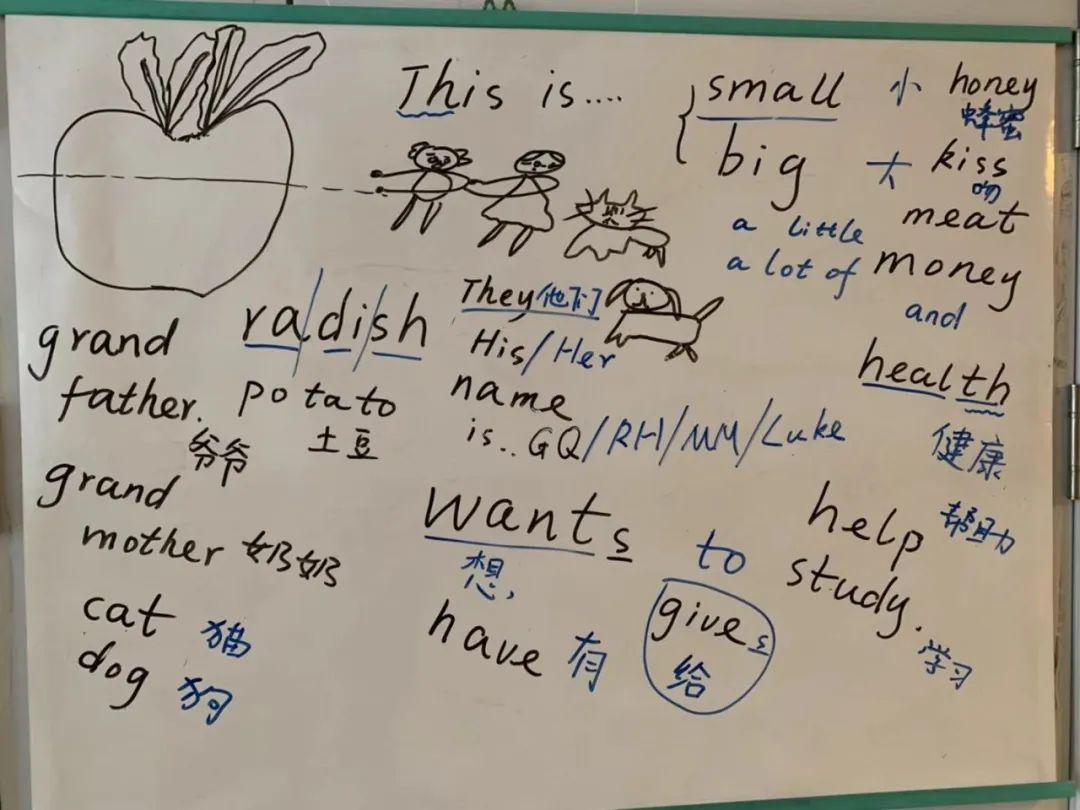 This is.... small 小 honey
蜂蜜
big 大 kiss
吻
a little meat
a lot of money
and
health
健康
radish
potato
土豆
They他们
His/Her
name
is.. GQ/RH/MM/Luke
grand
father.
爷爷
grand
mother 奶奶
cat 猫
dog 狗
wants to help 帮助
想, study.
学习
have 有 gives
给